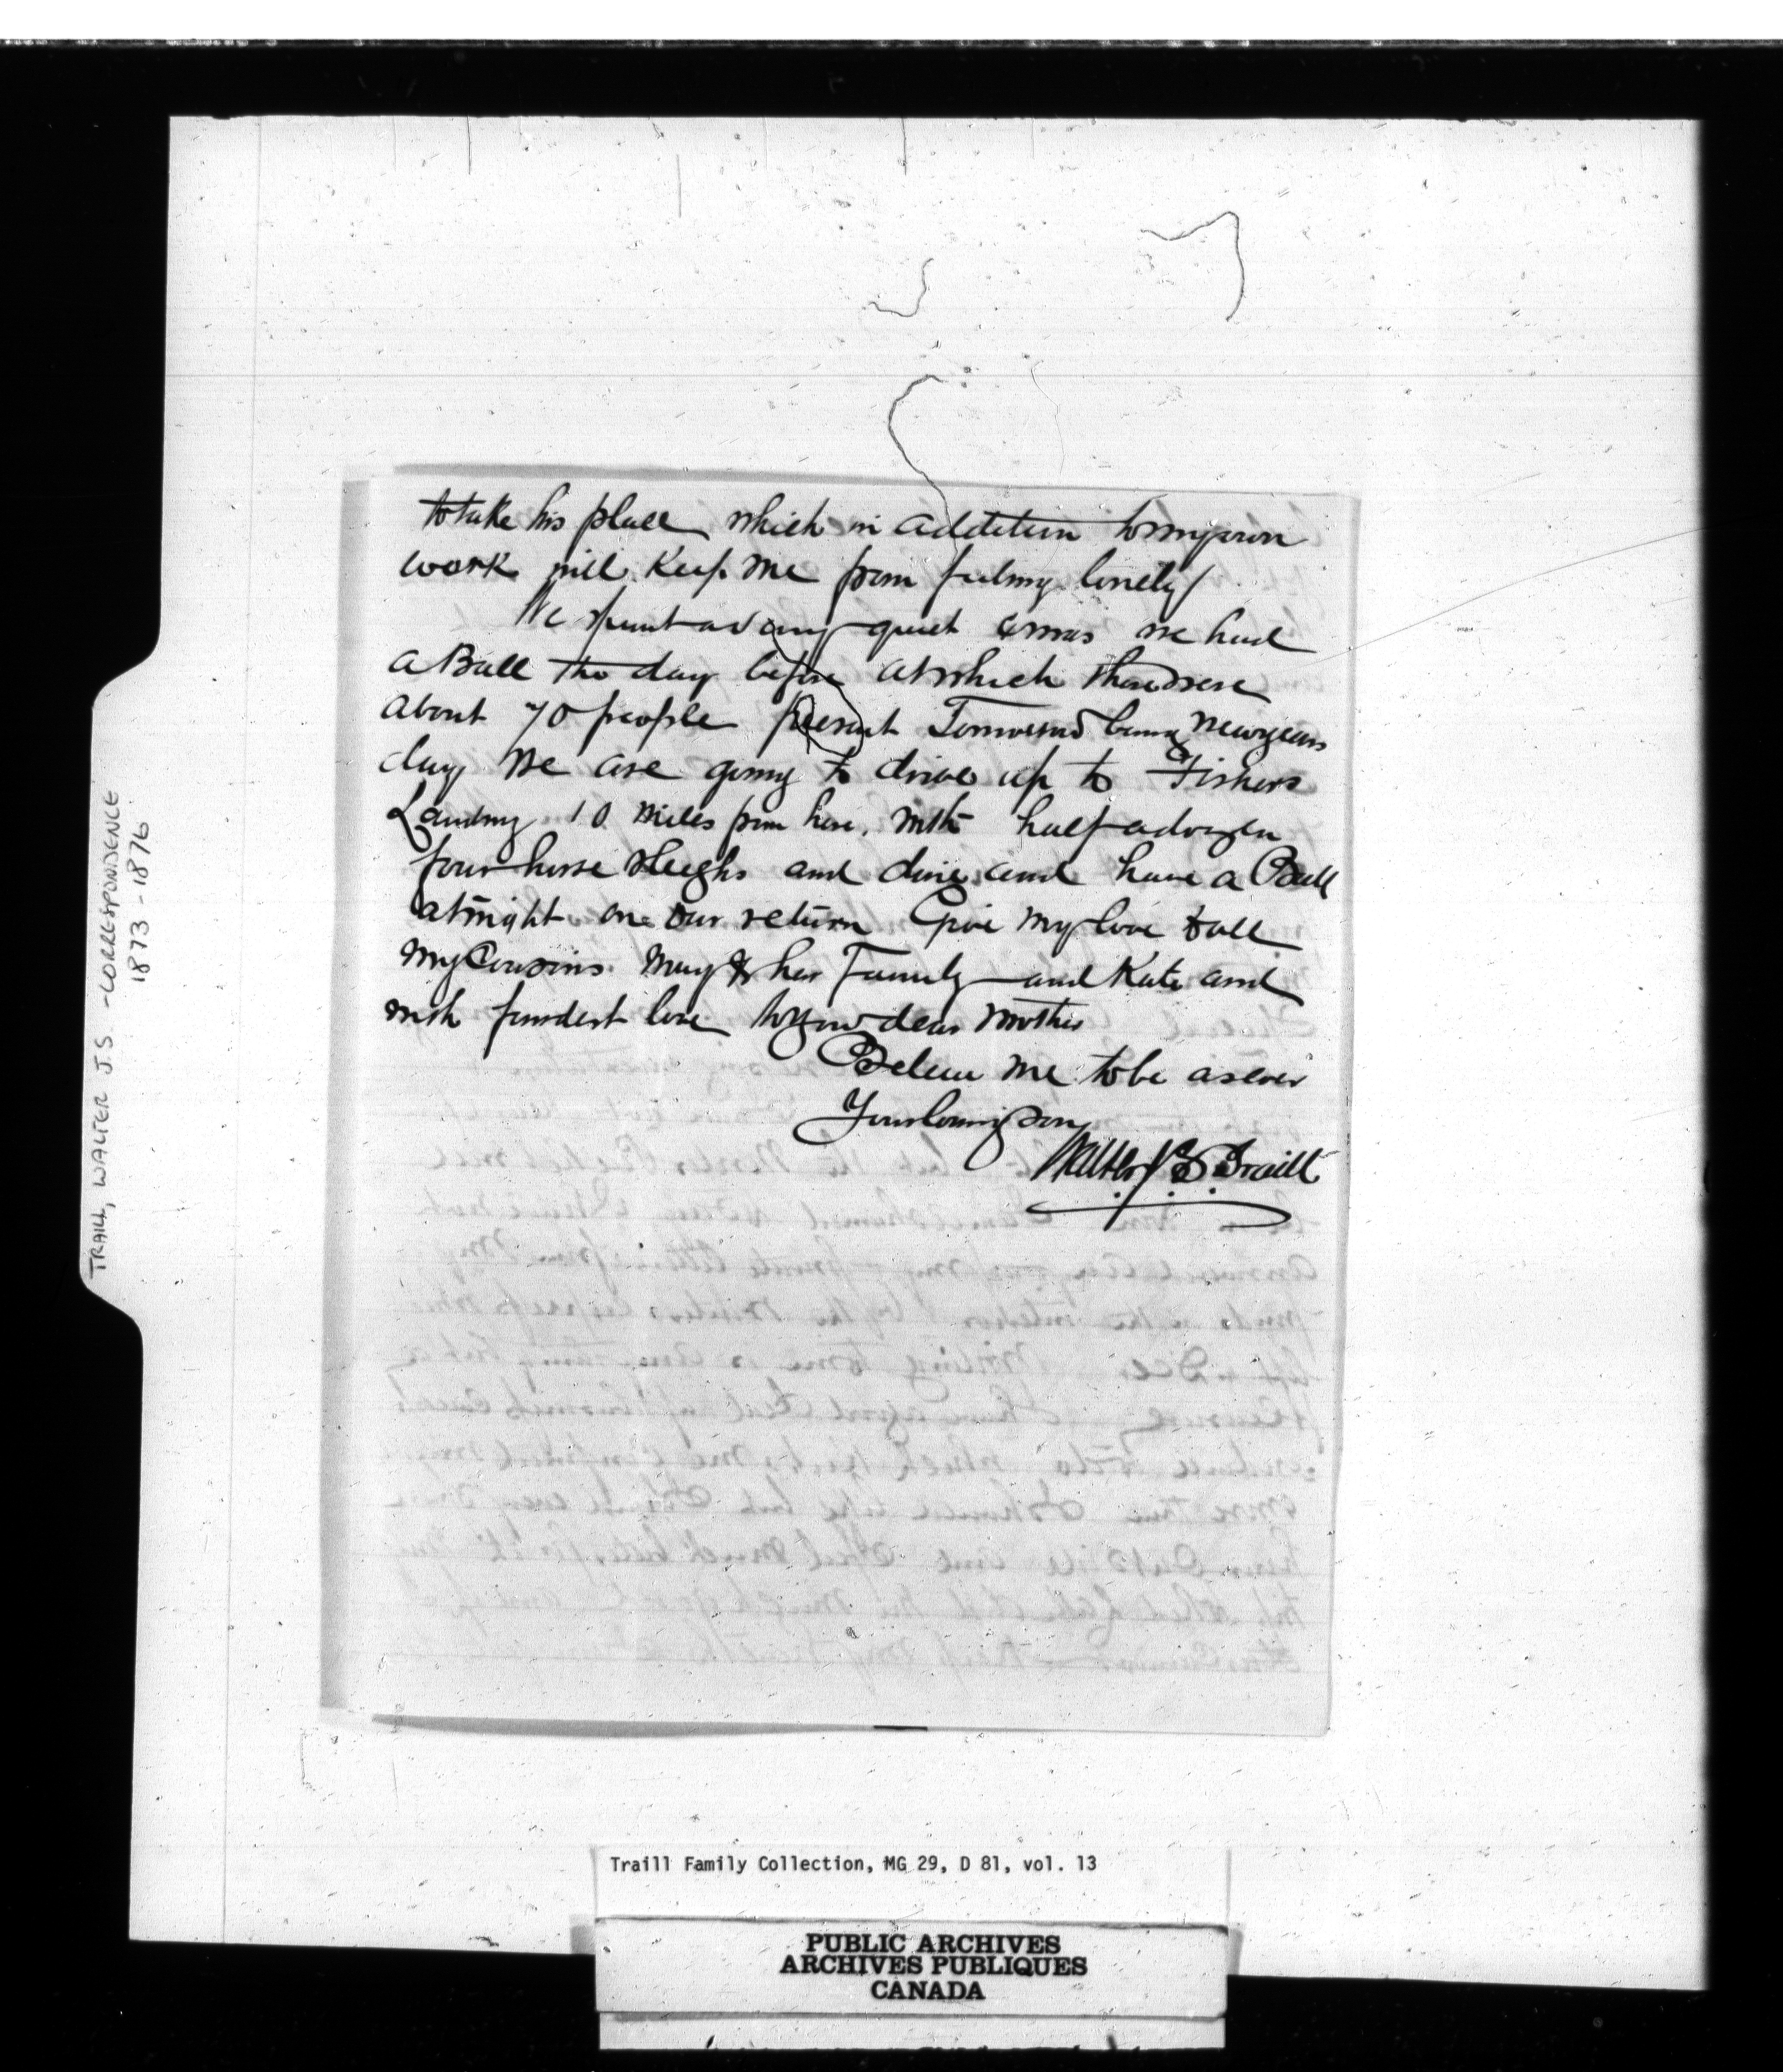 to take his place which in addition to my own
work will keep me from feeling lonely
We spent a very quiet Xmas we had
a Ball the day before at which there were
about 70 people present Tomorrow being Newyears
day we are going to drive up to Fishers
Landing 10 miles from here. with half a dozen
four horse sleighs and dine and have a Ball
at night on our return Give my love to all
my Cousins Mary & her Family and Kate and
with fondest love to your dear Mother
Believe me to be as ever
Your loving son
Walter J. S. Traill
TRAILL, WALTER J.S. - CORRESPONDENCE
1873-1876
Traill Family Collection, MG 29, D 81, vol. 13
PUBLIC ARCHIVES
ARCHIVES PUBLIQUES
CANADA